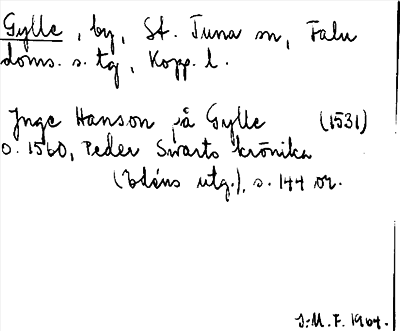 Gylle, by, St. Tuna sn, Falu
doms. s. tg, Kopp. l.
Jnge Hanson på Gylle (1531)
o. 1560, Peder Swarts krönika
(Edéns utg.), s. 144 or.
J.M.F. 1964.